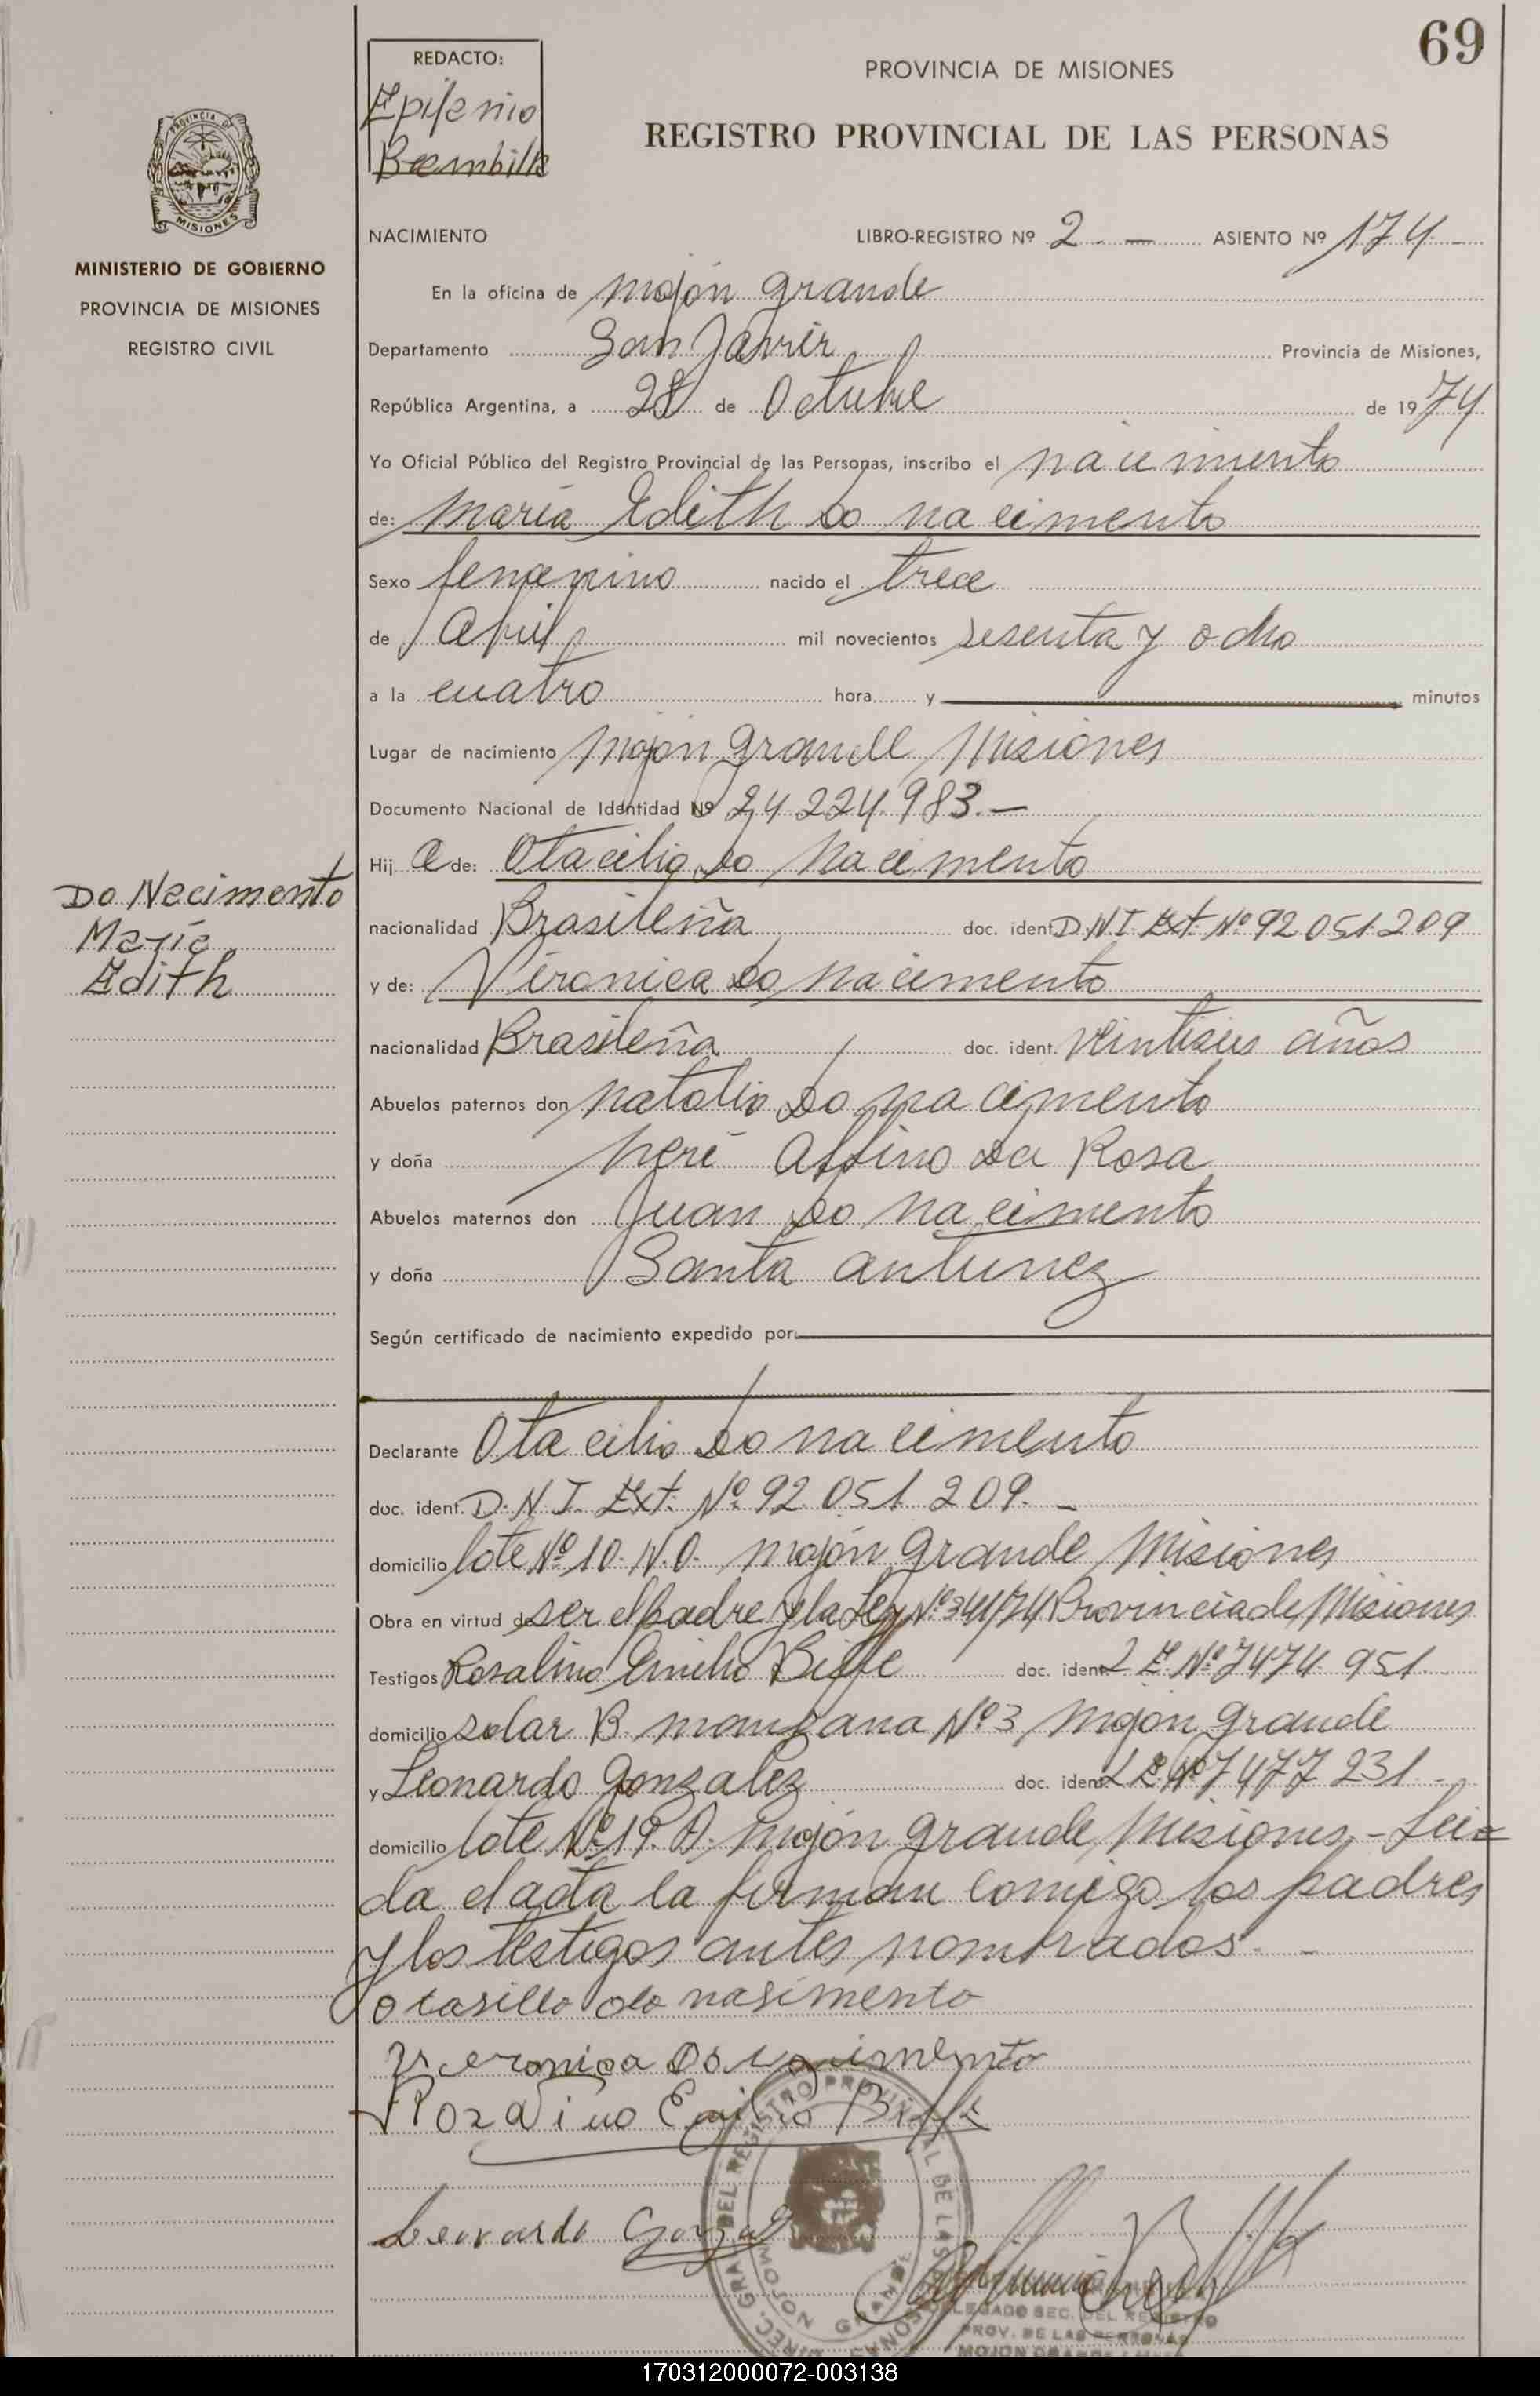 69
REDACTO:
Epifenio
Brambilla
PROVINCIA DE MISIONES
REGISTRO PROVINCIAL DE LAS PERSONAS
PROVINCIA DE
MISIONES
MINISTERIO DE GOBIERNO
PROVINCIA DE MISIONES
REGISTRO CIVIL
NACIMIENTO LIBRO-REGISTRO Nº 2.- ASIENTO Nº 174-
En la oficina de Mojón grande
Departamento San Javier Provincia de Misiones,
República Argentina, a 28 de Octubre de 1974
Yo Oficial Público del Registro Provincial de las Personas, inscribo el nacimiento
de: María Edith Do nacimento
Sexo femenino nacido el trece
de Abril mil novecientos sesenta y ocho
a la cuatro hora y minutos
Lugar de nacimiento Mojón grande Misiones
Documento Nacional de Identidad Nº 24.224.983.-
Hij a de: Otacilio Do Nacimento
Do Necimento
María
Edith
nacionalidad Brasileña doc. ident. D.N.I. Ext. Nº 92.051.209
y de: Véronica Do Nacimento
nacionalidad Brasileña doc. ident. veintiseis años
Abuelos paternos don Natalio Do nacimento
y doña Da Rosa
Abuelos maternos don Juan Do Nacimento
y doña Santa antunez
Según certificado de nacimiento expedido por:
Declarante Otacilio Do nacimento
doc. ident. D.N.I. Ext. Nº 92.051.209.-
domicilio lote Nº 10. N.O. Mojón grande Misiones
Obra en virtud de ser el padre y la Ley Nº 341/74 Provincia de Misiones
Testigos Rosalino Emilio Biffe doc. ident. L.E. Nº 7.474.951.
domicilio solar B manzana Nº 3 Mojón grande
y Leonardo gonzalez doc. ident. L.E. Nº 7.477.231.-
domicilio lote Nº 19. A. Mojón grande, Misiones,- Lei=
da el acta la firman comigo los padres
y los testigos antes nombrados.-
otasilio do nasimento
Veronica
Emilio Biffe
Leonardo Gonzalez
DIREC. GRAL. DEL REGISTRO PROVINCIAL DE LAS PERSONAS
MOJON GRANDE
DELEGADO SEC. DEL REGISTRO
PROV. DE LAS PERSONAS
MOJON GRANDE
170312000072-003138